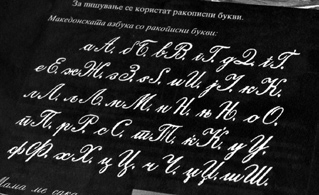 За пишување се користат ракописни букви.
Македонската азбука со ракописни букви:
аА, бБ, вВ, гГ, дД, ѓЃ
еЕ, жЖ, зЗ, ѕЅ, иИ, јЈ, кК,
лЛ, љЉ, мМ, нН, њЊ, оО,
пП, рР, сС, тТ, ќЌ, уУ,
фФ, хХ, цЦ, чЧ, џЏ, шШ.
Мама ме